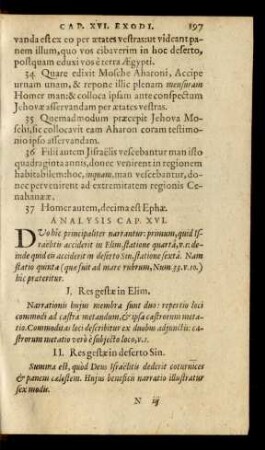 CAP. XVI. EXODI. 197
vanda est ex eo per ætates vestras: ut videant pa-
nem illum, quo vos cibaverim in hoc deserto,
postquam eduxi vos è terra Ægypti.
34. Quare edixit Mosche Aharoni, Accipe
urnam unam, & repone illic plenam mensuram
Homer man: & colloca ipsam ante conspectum
Jehovæ asservandam per ætates vestras.
35 Quemadmodum præcepit Jehova Mo-
schi, sic collocavit eam Aharon coram testimo-
nio ipsam asservando.
36 Filii autem Jisraëlis vescebantur man isto
quadraginta annis, donec venirent in regionem
habitabilem: hoc, inquam, man vescebantur, do-
nec pervenirent ad extremitatem regionis Ce-
nahanææ.
37 Homer autem, decima est Ephæ.
ANALYSIS CAP. XVI.
DVo hîc principaliter narrantur: primum, quid Is-
raëlitis acciderit in Elim, statione quartâ, v. 1: de-
inde quid eis acciderit in deserto Sin, statione sextâ. Nam
statio quinta (quæ fuit ad mare rubrum, Num. 33. v. 10.)
hîc præteritur.
I. Res gestæ in Elim.
Narrationis hujus membra sunt duo: repertio loci
commodi ad castra metandum, & ipsa castrorum meta-
tio. Commoditas loci describitur ex duobus adjunctis: ca-
strorum metatio verò è subjecto loco, v. 1.
II. Res gestæ in deserto Sin.
Summa est, quòd Deus Israëlitis dederit coturnices
& panem cælestem. Hujus beneficii narratio illustratur
sex modis.
N iij